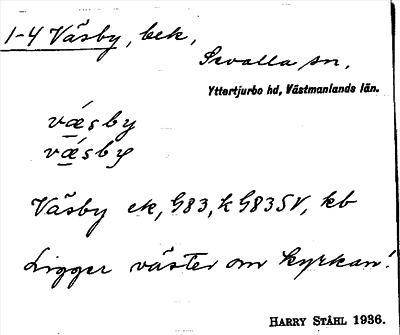 1-4 Väsby, bek,
Svalla sn,
Yttertjurbo hd, Västmanlands län.
vǽsby
vǽsby
Väsby ek, G83, k G83SV, kb
Ligger väster om kyrkan!
HARRY STÅHL 1936.